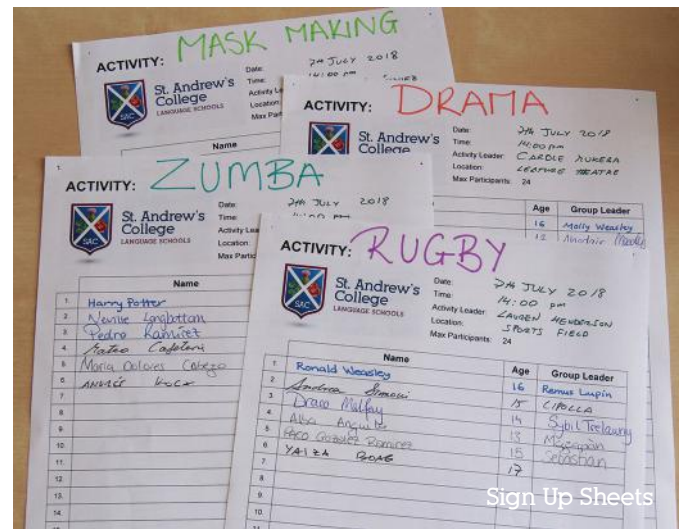 ACTIVITY: MASK MAKING
St. Andrew's College
LANGUAGE SCHOOLS
Date: 7th JULY 2018
Time: 14:00 pm
Activity Le
Location:
Max Part
Name
ACTIVITY: DRAMA
St. Andrew's College
Date: 7th JULY 2018
Time: 14:00 pm
Activity Leader:
Location: LECTURE THEATRE
Max Participants: 24
Age Group Leader
16 Molly Weasley
13
ACTIVITY: ZUMBA
1.
St. Andrew's College
LANGUAGE SCHOOLS
Date: 7th JULY 2018
Time:
Activity Lea
Location:
Max Partic
Name
1. Harry Potter
2. Neville Longbottom
3. Pedro Ramirez
4. Mateo Cafetera
5. Maria Dolores Cabeza
6.
7.
8.
9.
10.
11.
12.
13.
14.
ACTIVITY: RUGBY
St. Andrew's College
LANGUAGE SCHOOLS
SAC
Date: 7th JULY 2018
Time: 14:00 pm
Activity Leader: LAUREN HENDERSON
Location: SPORTS FIELD
Max Participants: 24
Name Age Group Leader
1. Ronald Weasley 16 Remus Lupin
2. Andrea Simoni 15 CIPOLLA
3. Draco Malfoy 14 Sybil Trelawny
4. Alba 13 Mazapán
5. PACO 15 Sebastian
6. YAIZA 17
7.
8.
9.
10.
Sign Up Sheets